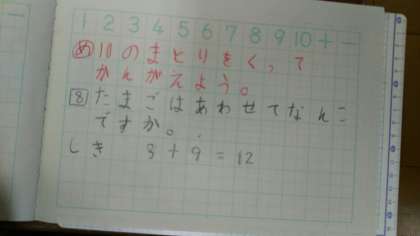 1 2 3 4 5 6 7 8 9 10 + −
め 10 のまとりをくって
かんがえよう。
8 たまごはあわせてなんこ
ですか。
しき 3 + 9 = 12